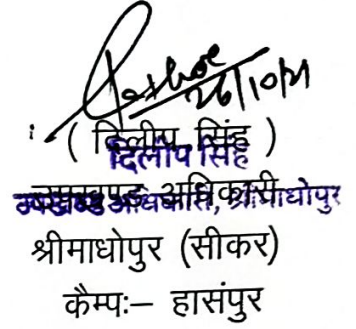 26/10/21
( दिलीप सिंह )
दिलीप सिंह
उपखण्ड अधिकारी
उपखण्ड अधिकारी, श्रीमाधोपुर
श्रीमाधोपुर (सीकर)
कैम्पः– हासंपुर